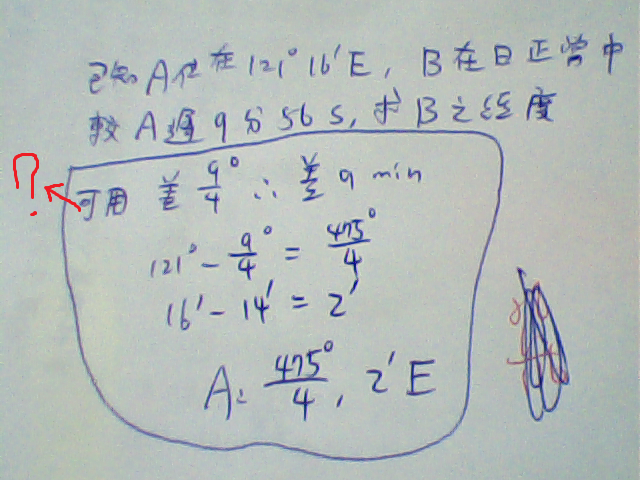 已知A位在121°16'E, B在日正當中
較A遲9分56s, 求B之經度
?
可用 差 9/4° ∴ 差 9 min
121° - 9/4° = 475°/4
16' - 14' = 2'
A: 475°/4, 2'E